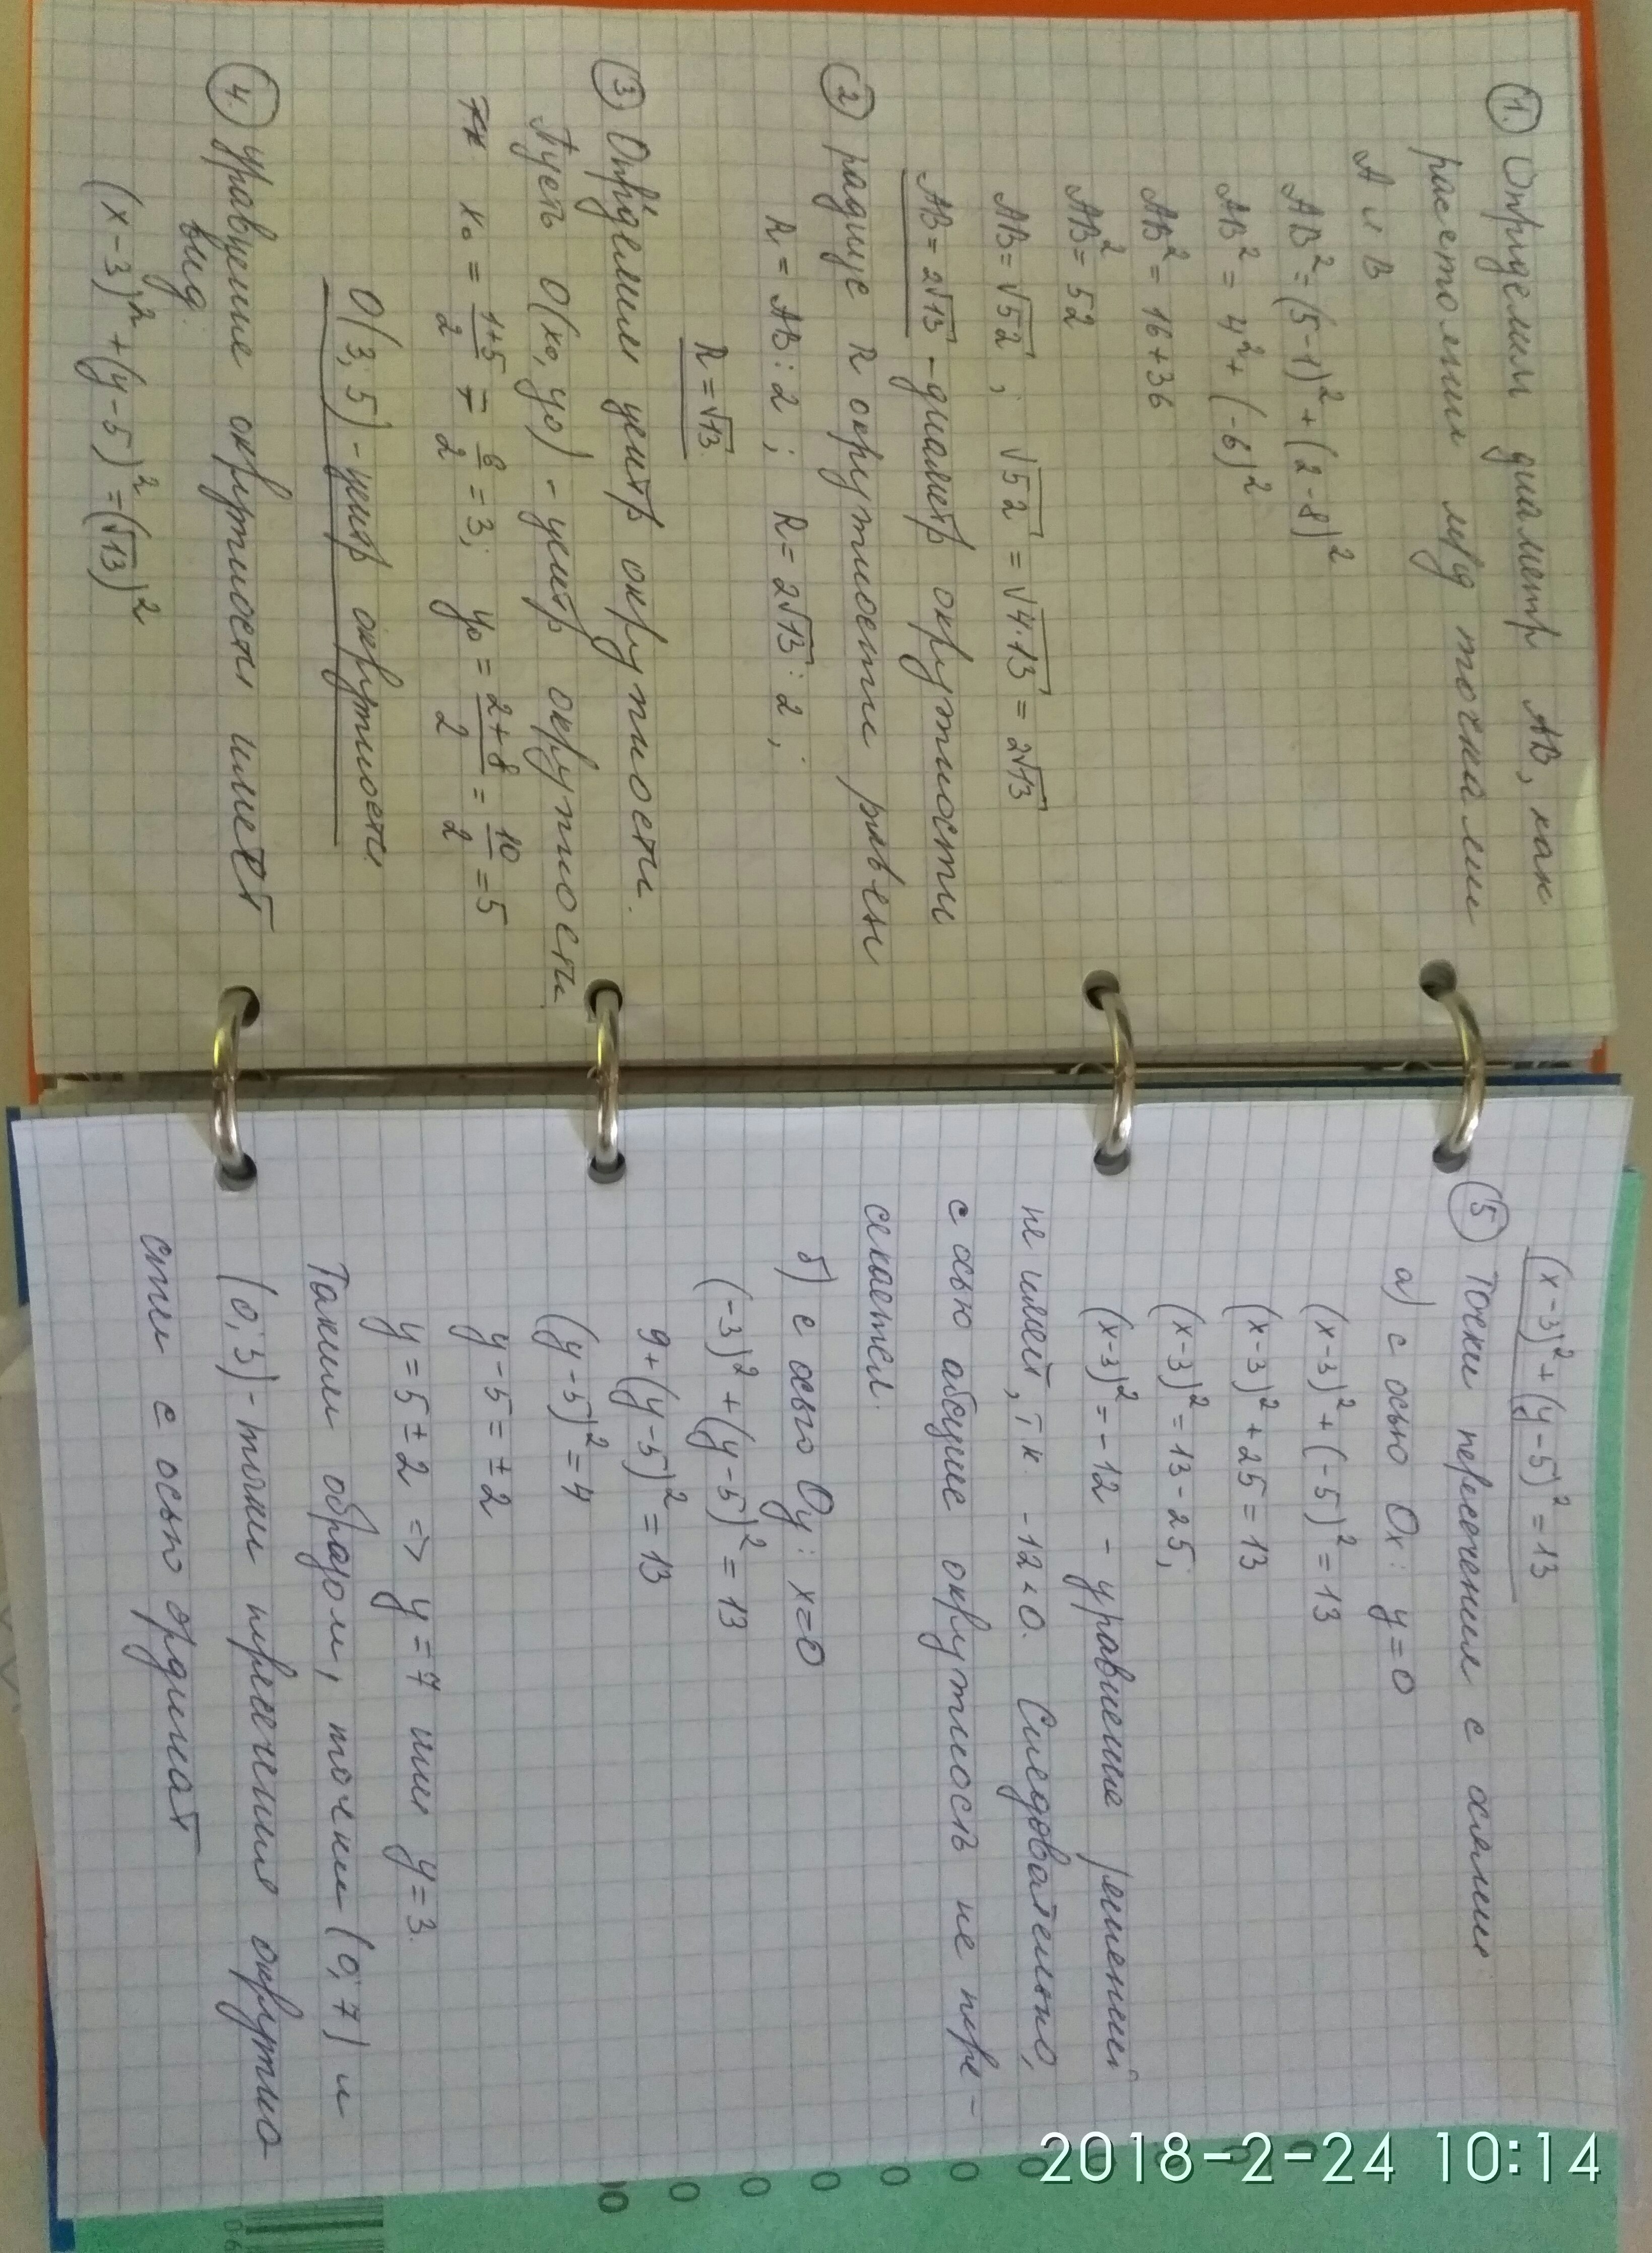 1. Определим диаметр АВ, как
расстояния межд точками
А и В
АВ² = (5-1)² + (2-8)²
АВ² = 4² + (-6)²
АВ² = 16 + 36
АВ² = 52
АВ = √52 ; √52 = √4·13 = 2√13
АВ = 2√13 - диаметр окружности
2 радиус R окружности равен
R = АВ : 2 ; R = 2√13 : 2 ;
R = √13.
3 Определим центр окружности.
Пусть О(x₀, y₀) - центр окружности
x₀ = 1+5/2 = 6/2 = 3; y₀ = 2+8/2 = 10/2 = 5
О(3; 5) - центр окружности
4. Уравнение окружности имеет
вид:
(x-3)² + (y-5)² = (√13)²
(x-3)² + (y-5)² = 13
5 Точки пересечения с осями:
а) с осью Ох: y=0
(x-3)² + (-5)² = 13
(x-3)² + 25 = 13
(x-3)² = 13 - 25;
(x-3)² = -12 - уравнение решений
не имеет, т.к. -12 < 0. Следовательно,
с осью абсцисс окружность не пере-
секается.
б) с осью Оу: x=0
(-3)² + (y-5)² = 13
9 + (y-5)² = 13
(y-5)² = 4
y-5 = ±2
y = 5 ± 2 => y = 7 или y = 3.
Таким образом, точки (0; 7) и
(0; 3) - точки пресечения окружно
сти с осью ординат
2018-2-24 10:14